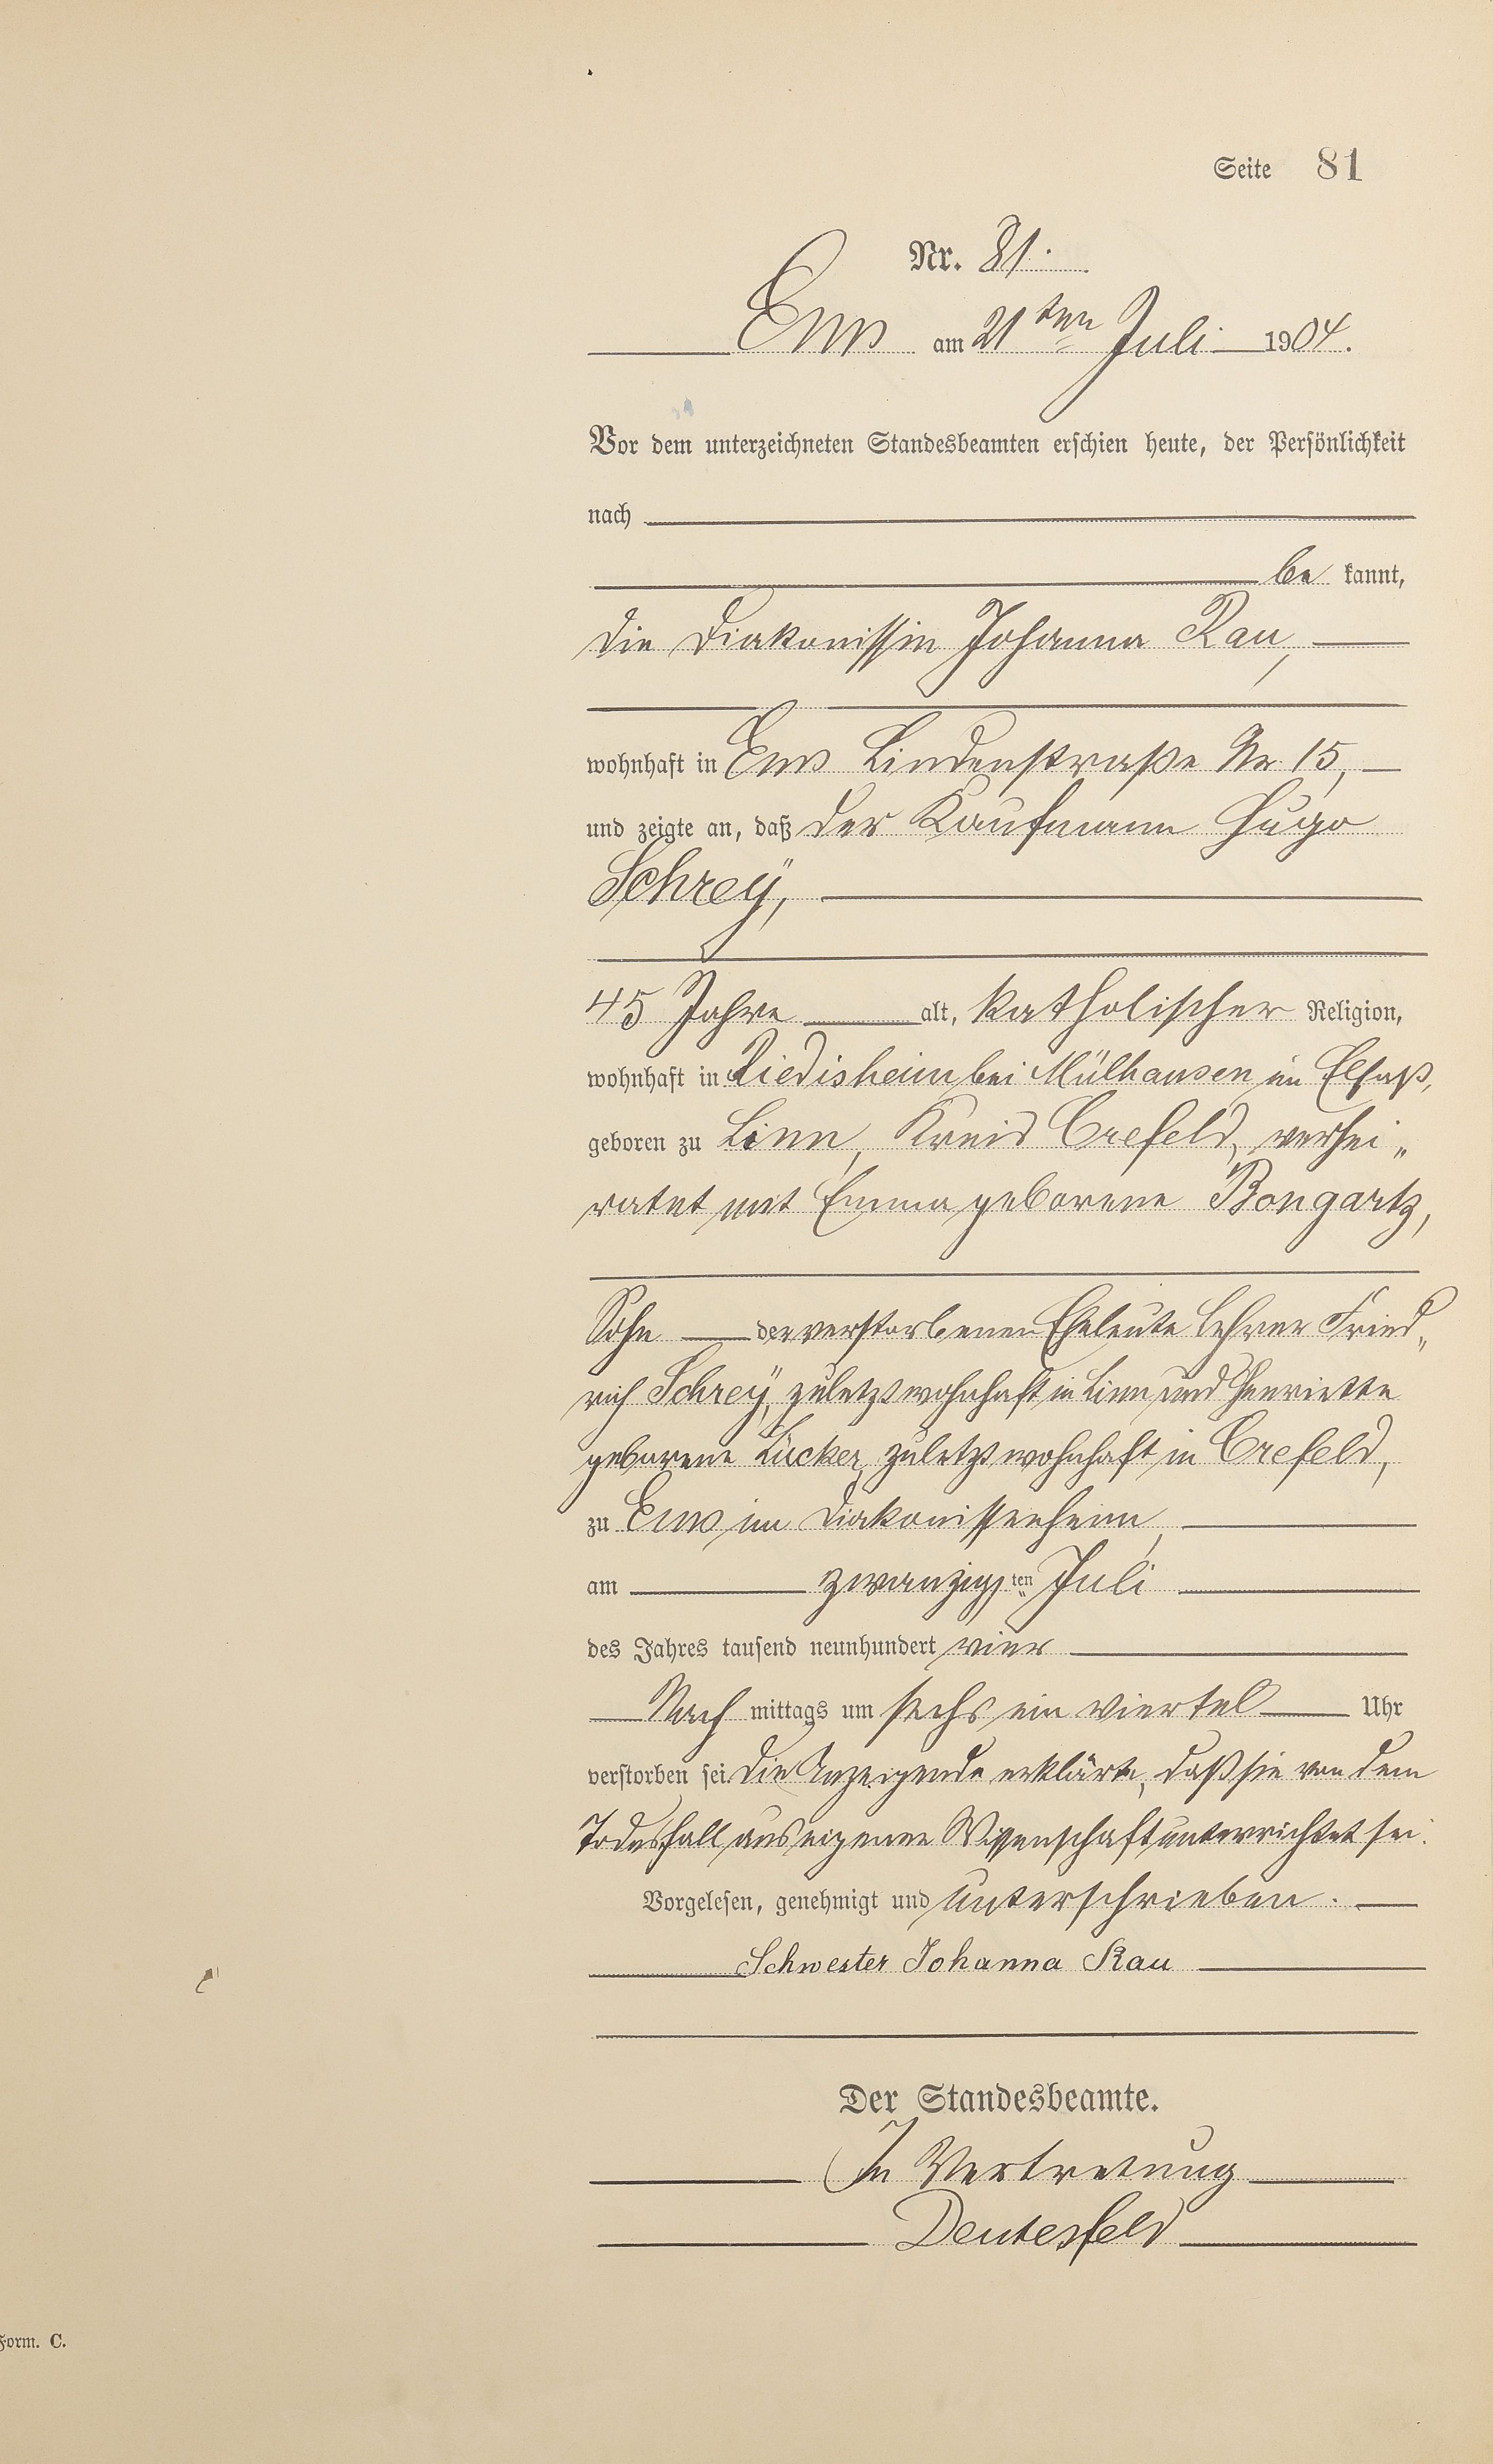 Seite 81
Nr. 81.
Ems am 21ten Juli 1904.
Vor dem unterzeichneten Standesbeamten erschien heute, der Persönlichkeit
nach
be kannt,
die Diakonissin Johanna Rau,
wohnhaft in Ems Lindenstraße Nr. 15,
und zeigte an, daß der Kaufmann Hugo
Schreÿ,
45 Jahre alt, katholischer Religion,
wohnhaft in Riedisheim bei Mülhausen im Elsaß,
geboren zu Linn, Kreis Crefeld, verhei„
ratet mit Emma geborene Bongartz,
Sohn der verstorbenen Eheleute Lehrer Fried„
rich Schreÿ, zuletzt wohnhaft in Linn und Henriette
geborene Lücker, zuletzt wohnhaft in Crefeld,
zu Ems im Diakonissenheim,
am zwanzigsten Juli
des Jahres tausend neunhundert vier
Nach mittags um sechs ein viertel Uhr
verstorben sei. Die Anzeigende erklärte, daß sie von dem
Todesfall aus eigener Wissenschaft unterrichtet sei.
Vorgelesen, genehmigt und unterschrieben.
Schwester Johanna Rau
Der Standesbeamte.
In Vertretung
Deutesfeld
Form. C.